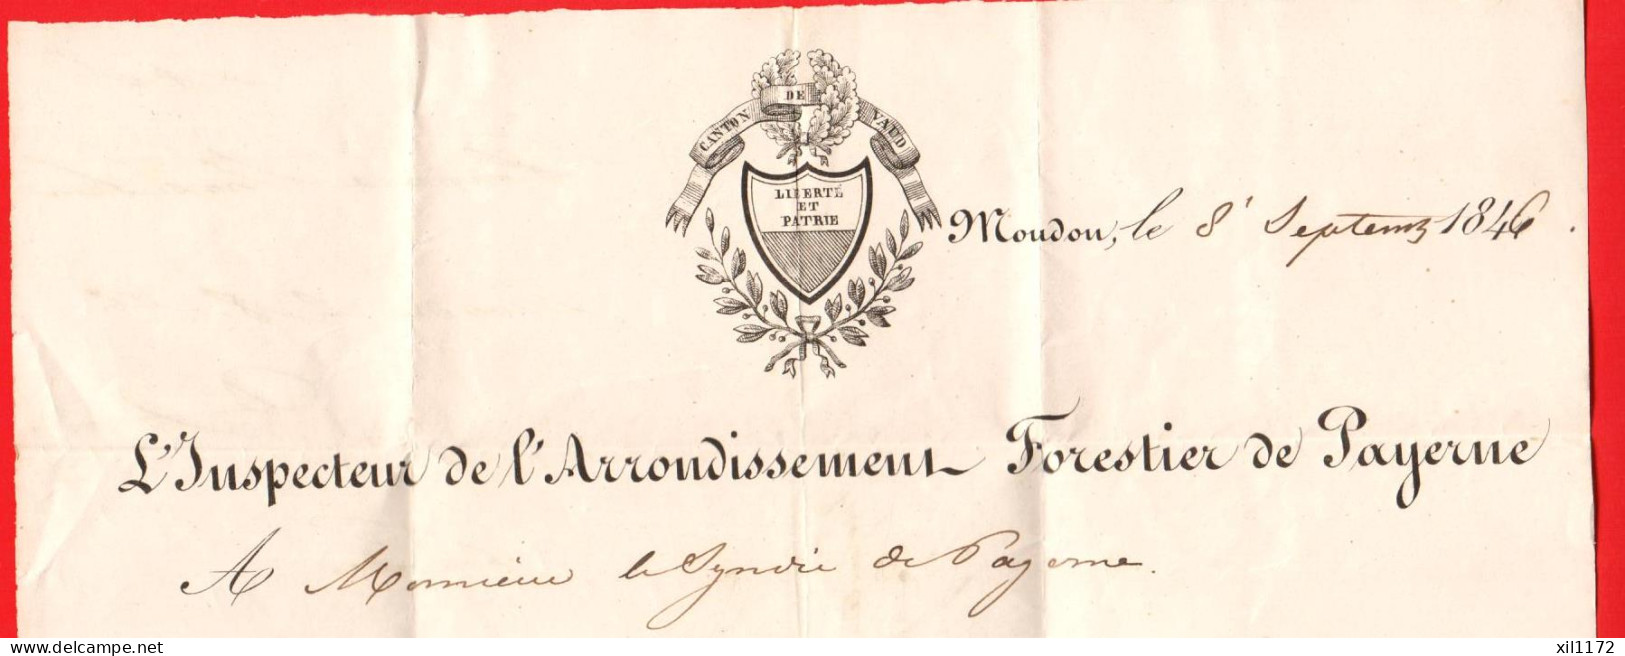 CANTON DE VAUD
LIBERTÉ
ET
PATRIE
Moudon, le 8' Septemb 1846.
L'Inspecteur de l'Arrondissement Forestier de Payerne
A Monsieur le Syndic de Payerne.
delcampe.net
xil1172